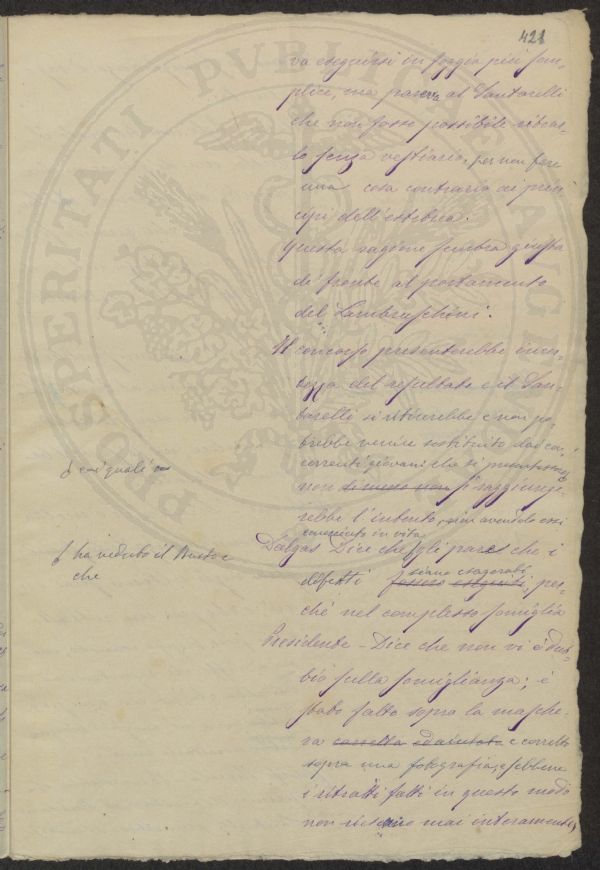 421
va eseguirsi in foggia più sem-
plice, ma pareva al Santarelli
che non fosse possibile ritrar-
lo senza vestiario, per non fare
una cosa contraria ai prin-
cipi dell'estetica.
Questa ragione sembra giusta
di fronte al portamento
del Lambruschini.
Il concorso presenterebbe incer-
tezza del resultato e il San-
tarelli si ritirerebbe e non po-
trebbe venire sostituito dai con-
correnti giovani che si presentassero
e coi quali
non di meno non si raggiunge-
rebbe l'intento, non avendolo essi
conosciuto in vita
Dalgas Dice che gli pare che i
ha veduto il Busto e
che
siano esagerati
difetti fossero eseguiti, per-
ché nel complesso somiglia
Presidente - Dice che non vi è dub-
bio sulla somiglianza; è
stato fatto sopra la masche-
ra e corretto
sopra una fotografia, e sebbene
i ritratti fatti in questo modo
non riescano mai interamente,
PROSPERITATI PUBLICAE